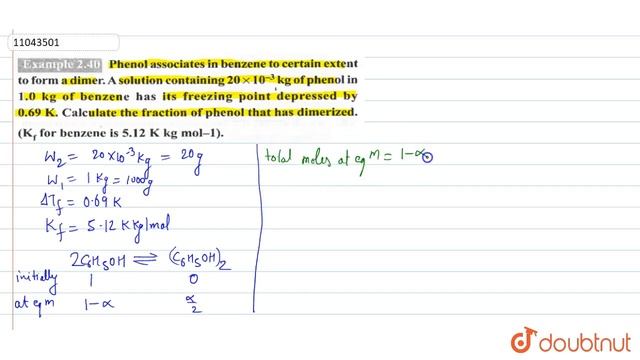 11043501
Example 2.40 Phenol associates in benzene to certain extent
to form a dimer. A solution containing 20 × 10⁻³ kg of phenol in
1.0 kg of benzene has its freezing point depressed by
0.69 K. Calculate the fraction of phenol that has dimerized.
(Kf for benzene is 5.12 K kg mol–1).
W₂ = 20×10⁻³ Kg = 20g
W₁ = 1 Kg = 1000g
ΔTf = 0.69 K
Kf = 5.12 K Kg/mol
2C6H5OH ⇌ (C6H5OH)₂
initially 1 0
at eqm 1-α α/2
total moles at eqm = 1-α
doubtnut